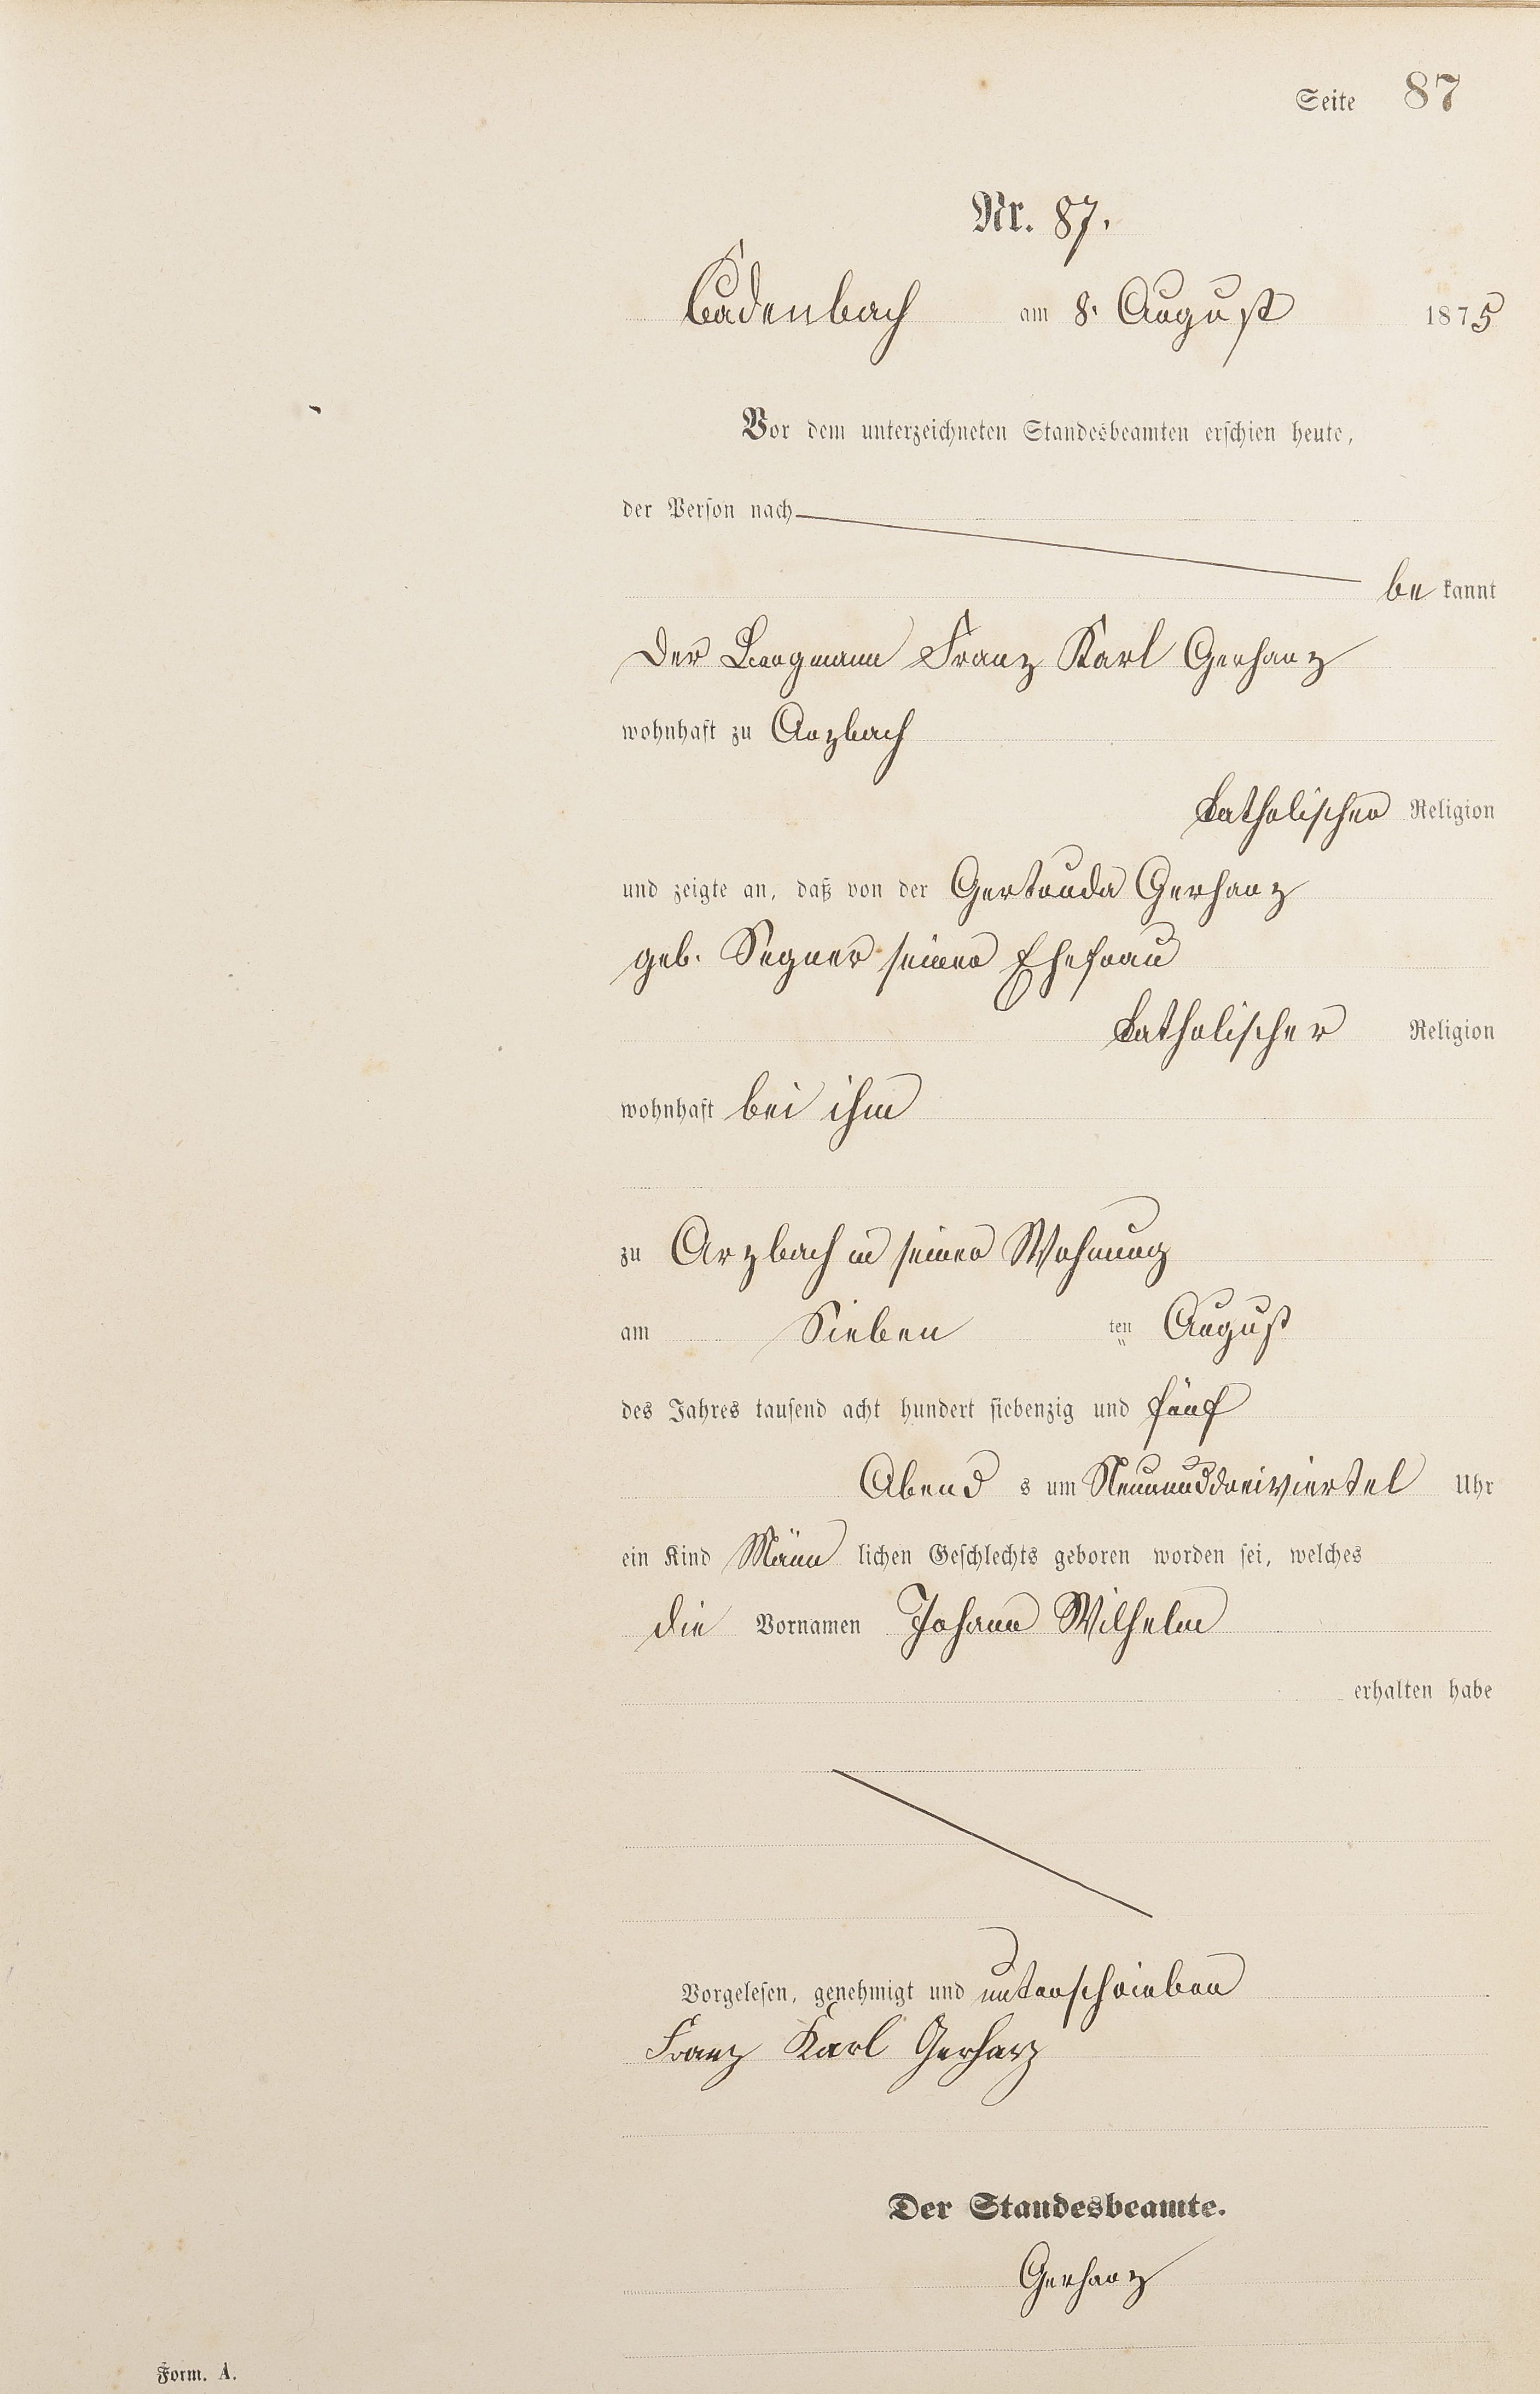 Seite 87
Nr. 87.
Cadenbach am 8. August 1875
Vor dem unterzeichneten Standesbeamten erschien heute,
der Person nach
be kannt
der Bergmann Franz Karl Gerharz
wohnhaft zu Arzbach
katholischer Religion
und zeigte an, daß von der Gertruda Gerharz
geb. Segner seiner Ehefrau
katholischer Religion
wohnhaft bei ihm
zu Arzbach in seiner Wohnung
am Sieben ten August
des Jahres tausend acht hundert siebenzig und fünf
Abend s um Neununddreiviertel Uhr
ein Kind Männ lichen Geschlechts geboren worden sei, welches
die Vornamen Johann Wilhelm
erhalten habe
Vorgelesen, genehmigt und unterschrieben
Franz Karl Gerharz
Der Standesbeamte.
Gerharz
Form. A.